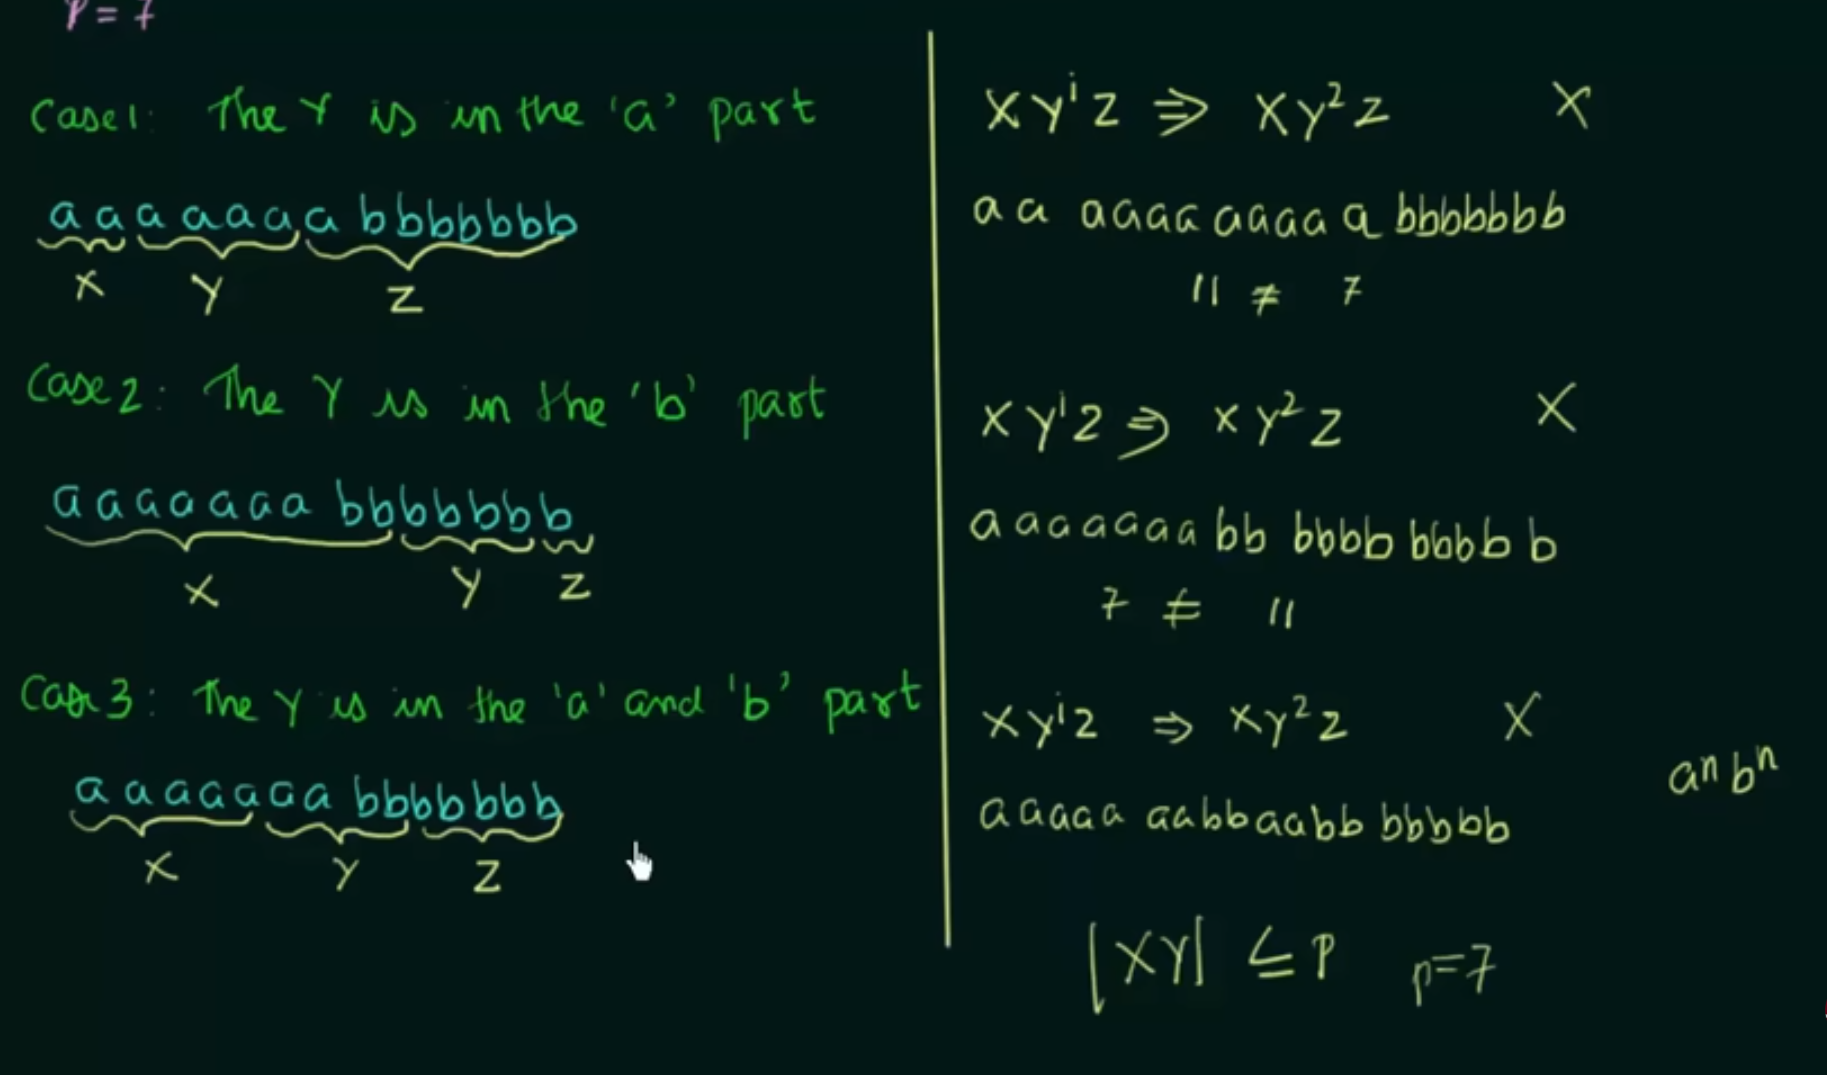 P = 7
Case 1: The Y is in the 'a' part
aaaaaaabbbbbbb
X Y Z
Case 2: The Y is in the 'b' part
aaaaaaabbbbbbb
X Y Z
Case 3: The Y is in the 'a' and 'b' part
aaaaaaabbbbbbb
X Y Z
XYⁱZ ⇒ XY²Z X
aa aaaa aaaa a bbbbbbb
11 ≠ 7
XYⁱZ ⇒ XY²Z X
aaaaaaa bb bbbb bbbb b
7 ≠ 11
XYⁱZ ⇒ XY²Z X
aⁿbⁿ
aaaaa aabbaabb bbbbb
|XY| ≤ P p=7